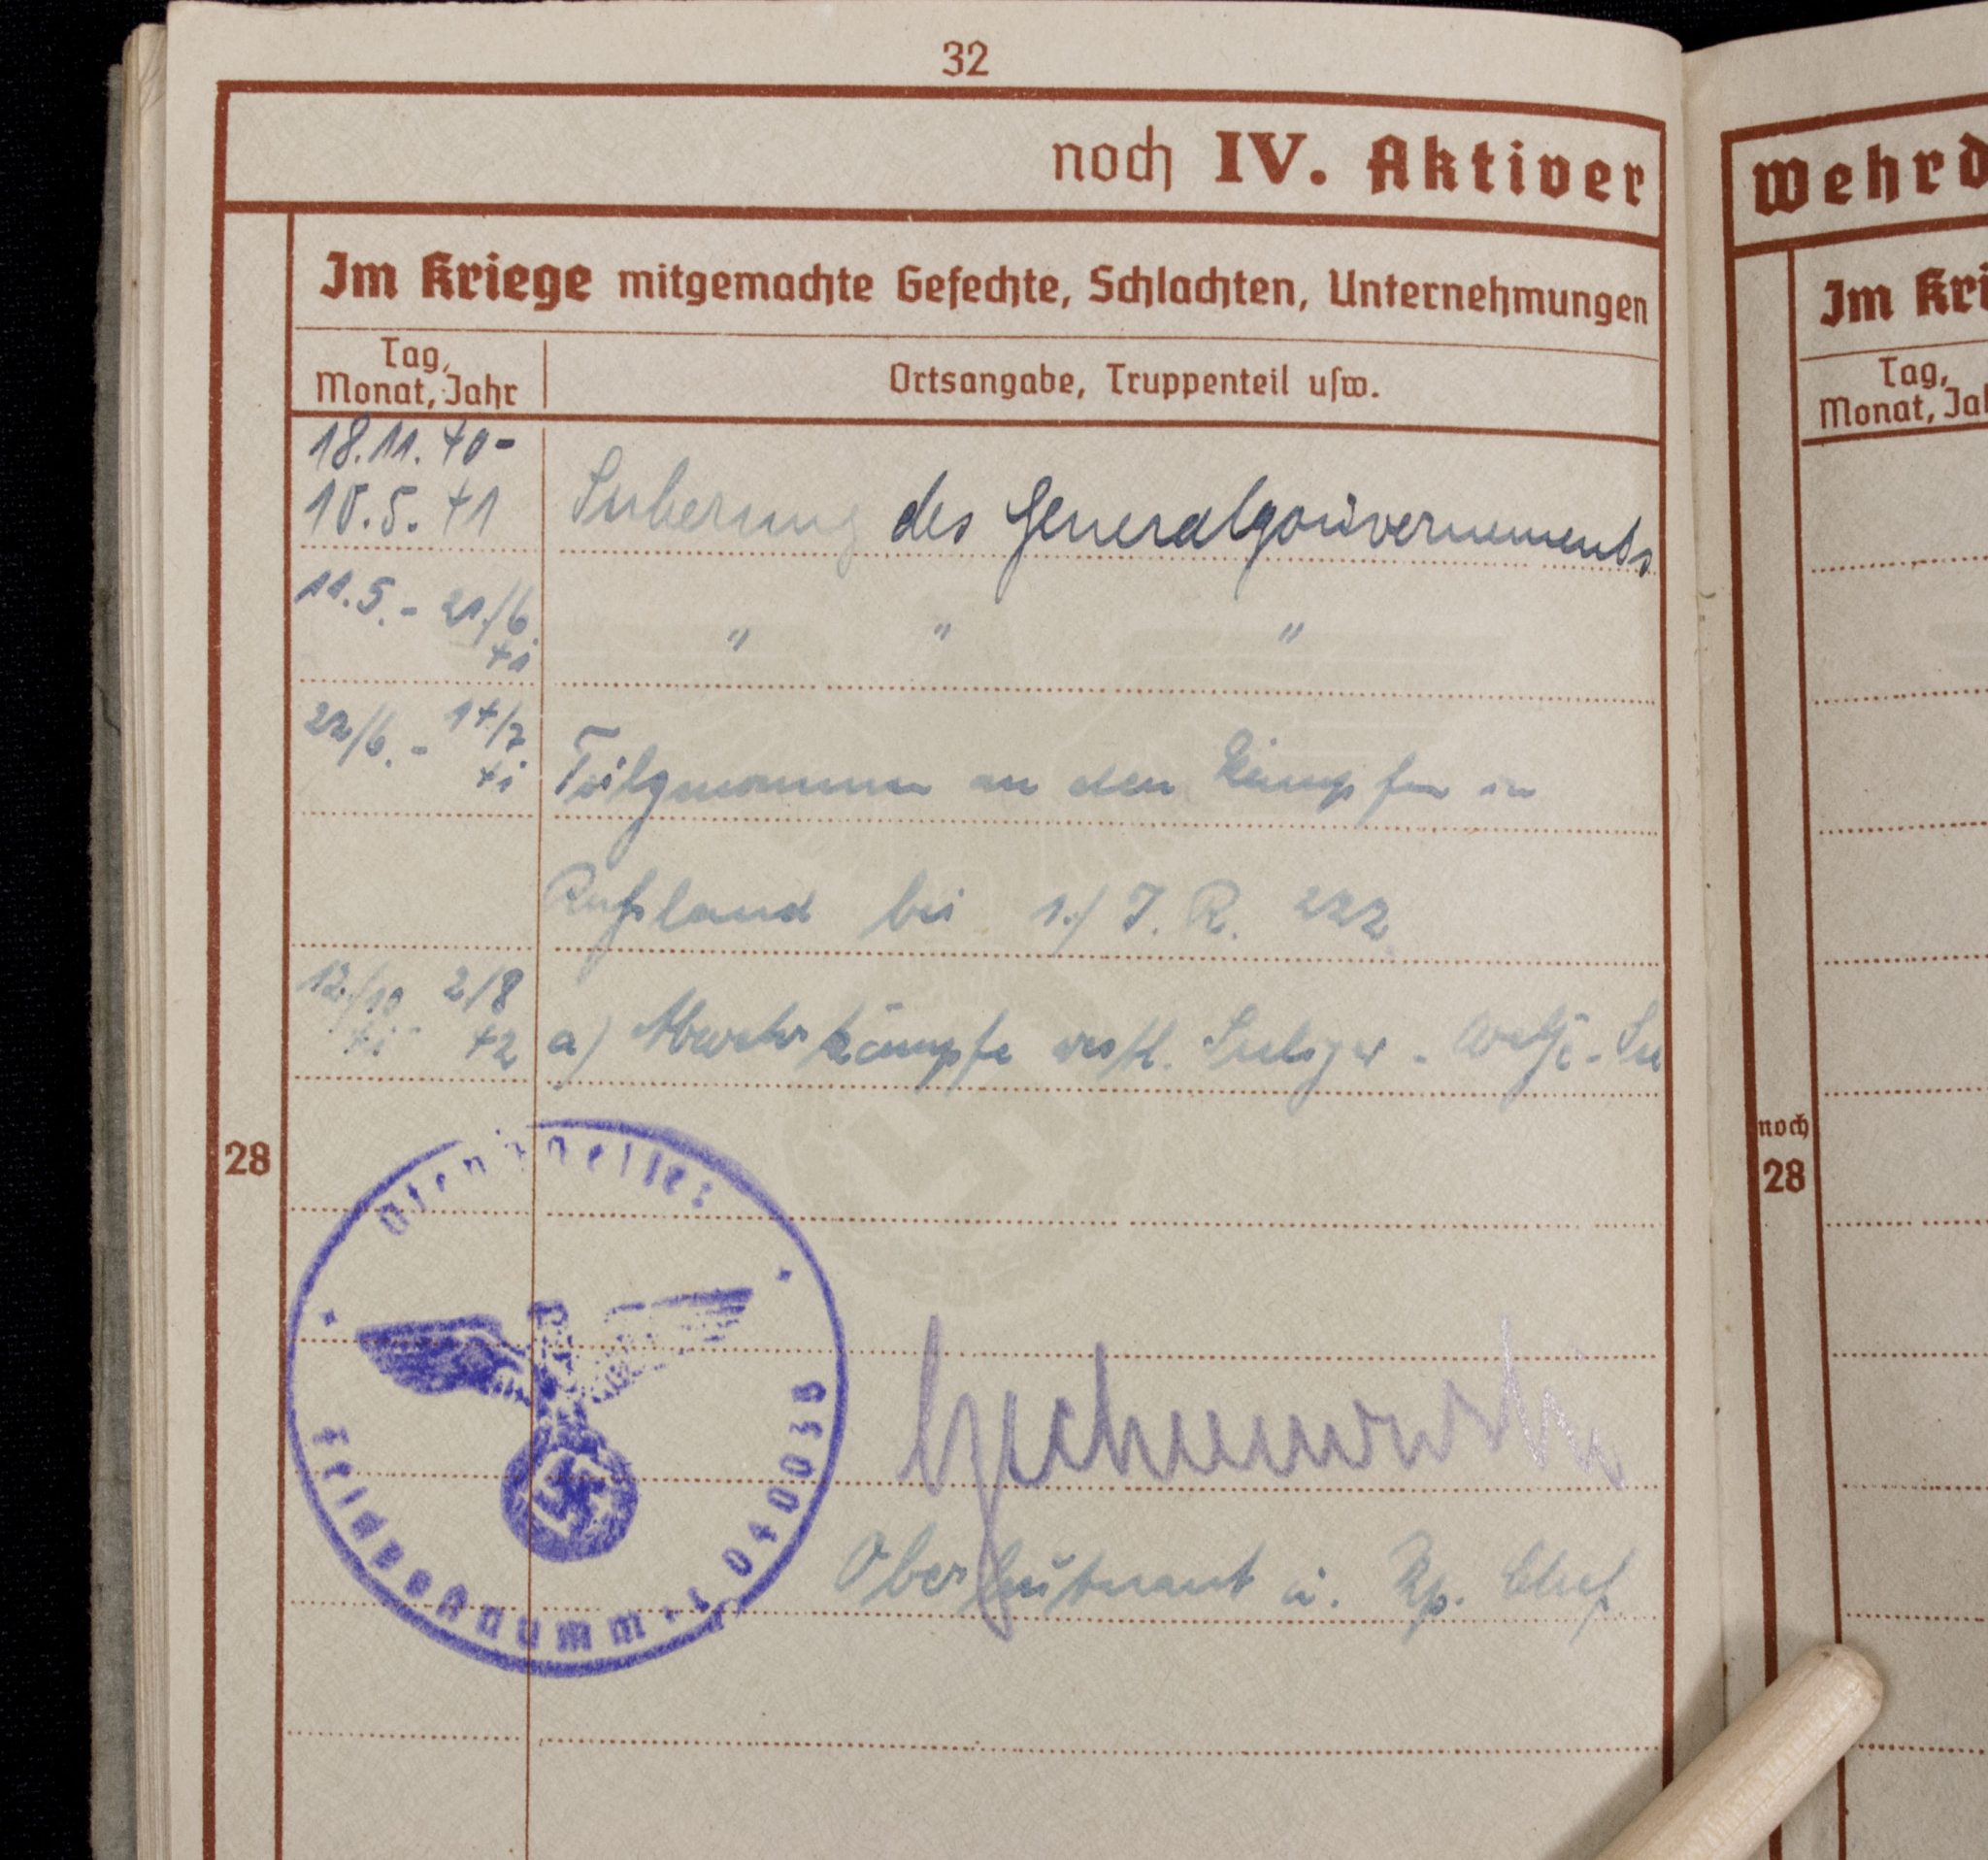 32
noch IV. Aktiver
Im Kriege mitgemachte Gefechte, Schlachten, Unternehmungen
Tag,
Monat, Jahr
Ortsangabe, Truppenteil usw.
18.11.40-
10.5.41
des Generalgouvernements
11.5.- 21/6.
41
" " "
22/6.- 14/7
41
Teilgenommen an den Kämpfen in
Rußland bei 1./I.R. 222
12./10 2/8
41- 42
a) Abwehrkämpfe westl.
28
Feldpostnummer 04003B
Oberleutnant u. Kp. Chef
Wehrd
Im Kri
Tag,
Monat, Jah
noch
28